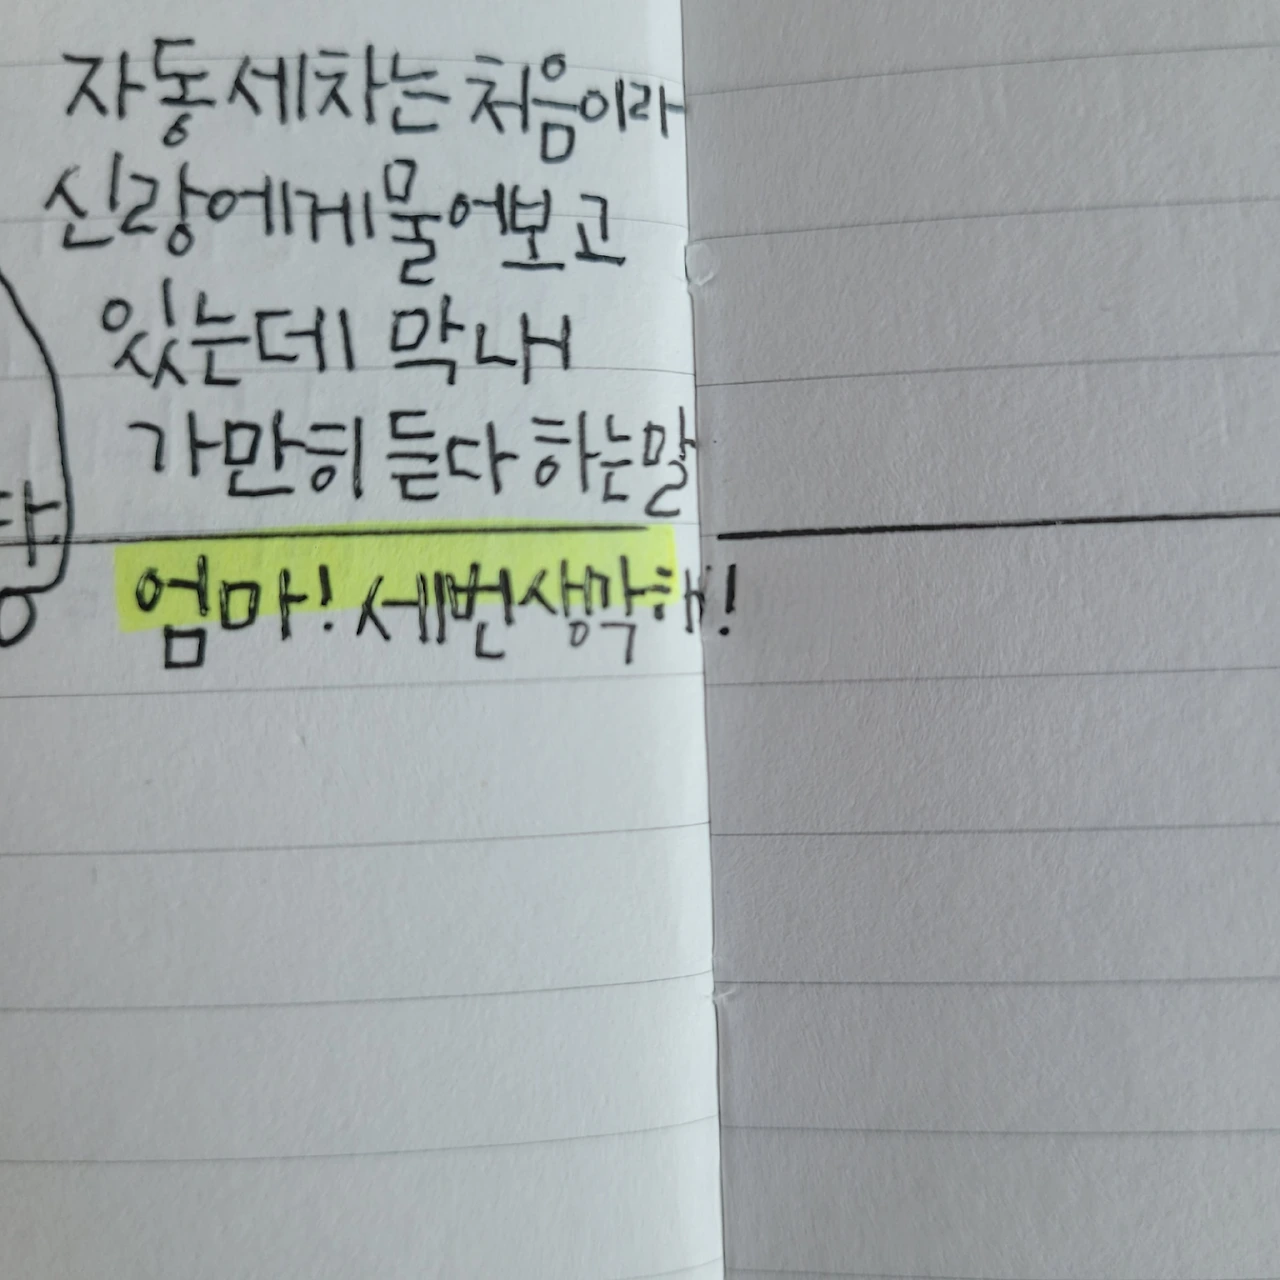 자동세차는 처음이라
신랑에게 물어보고
있는데 막내
가만히 듣다 하는말
엄마! 세번생각해!